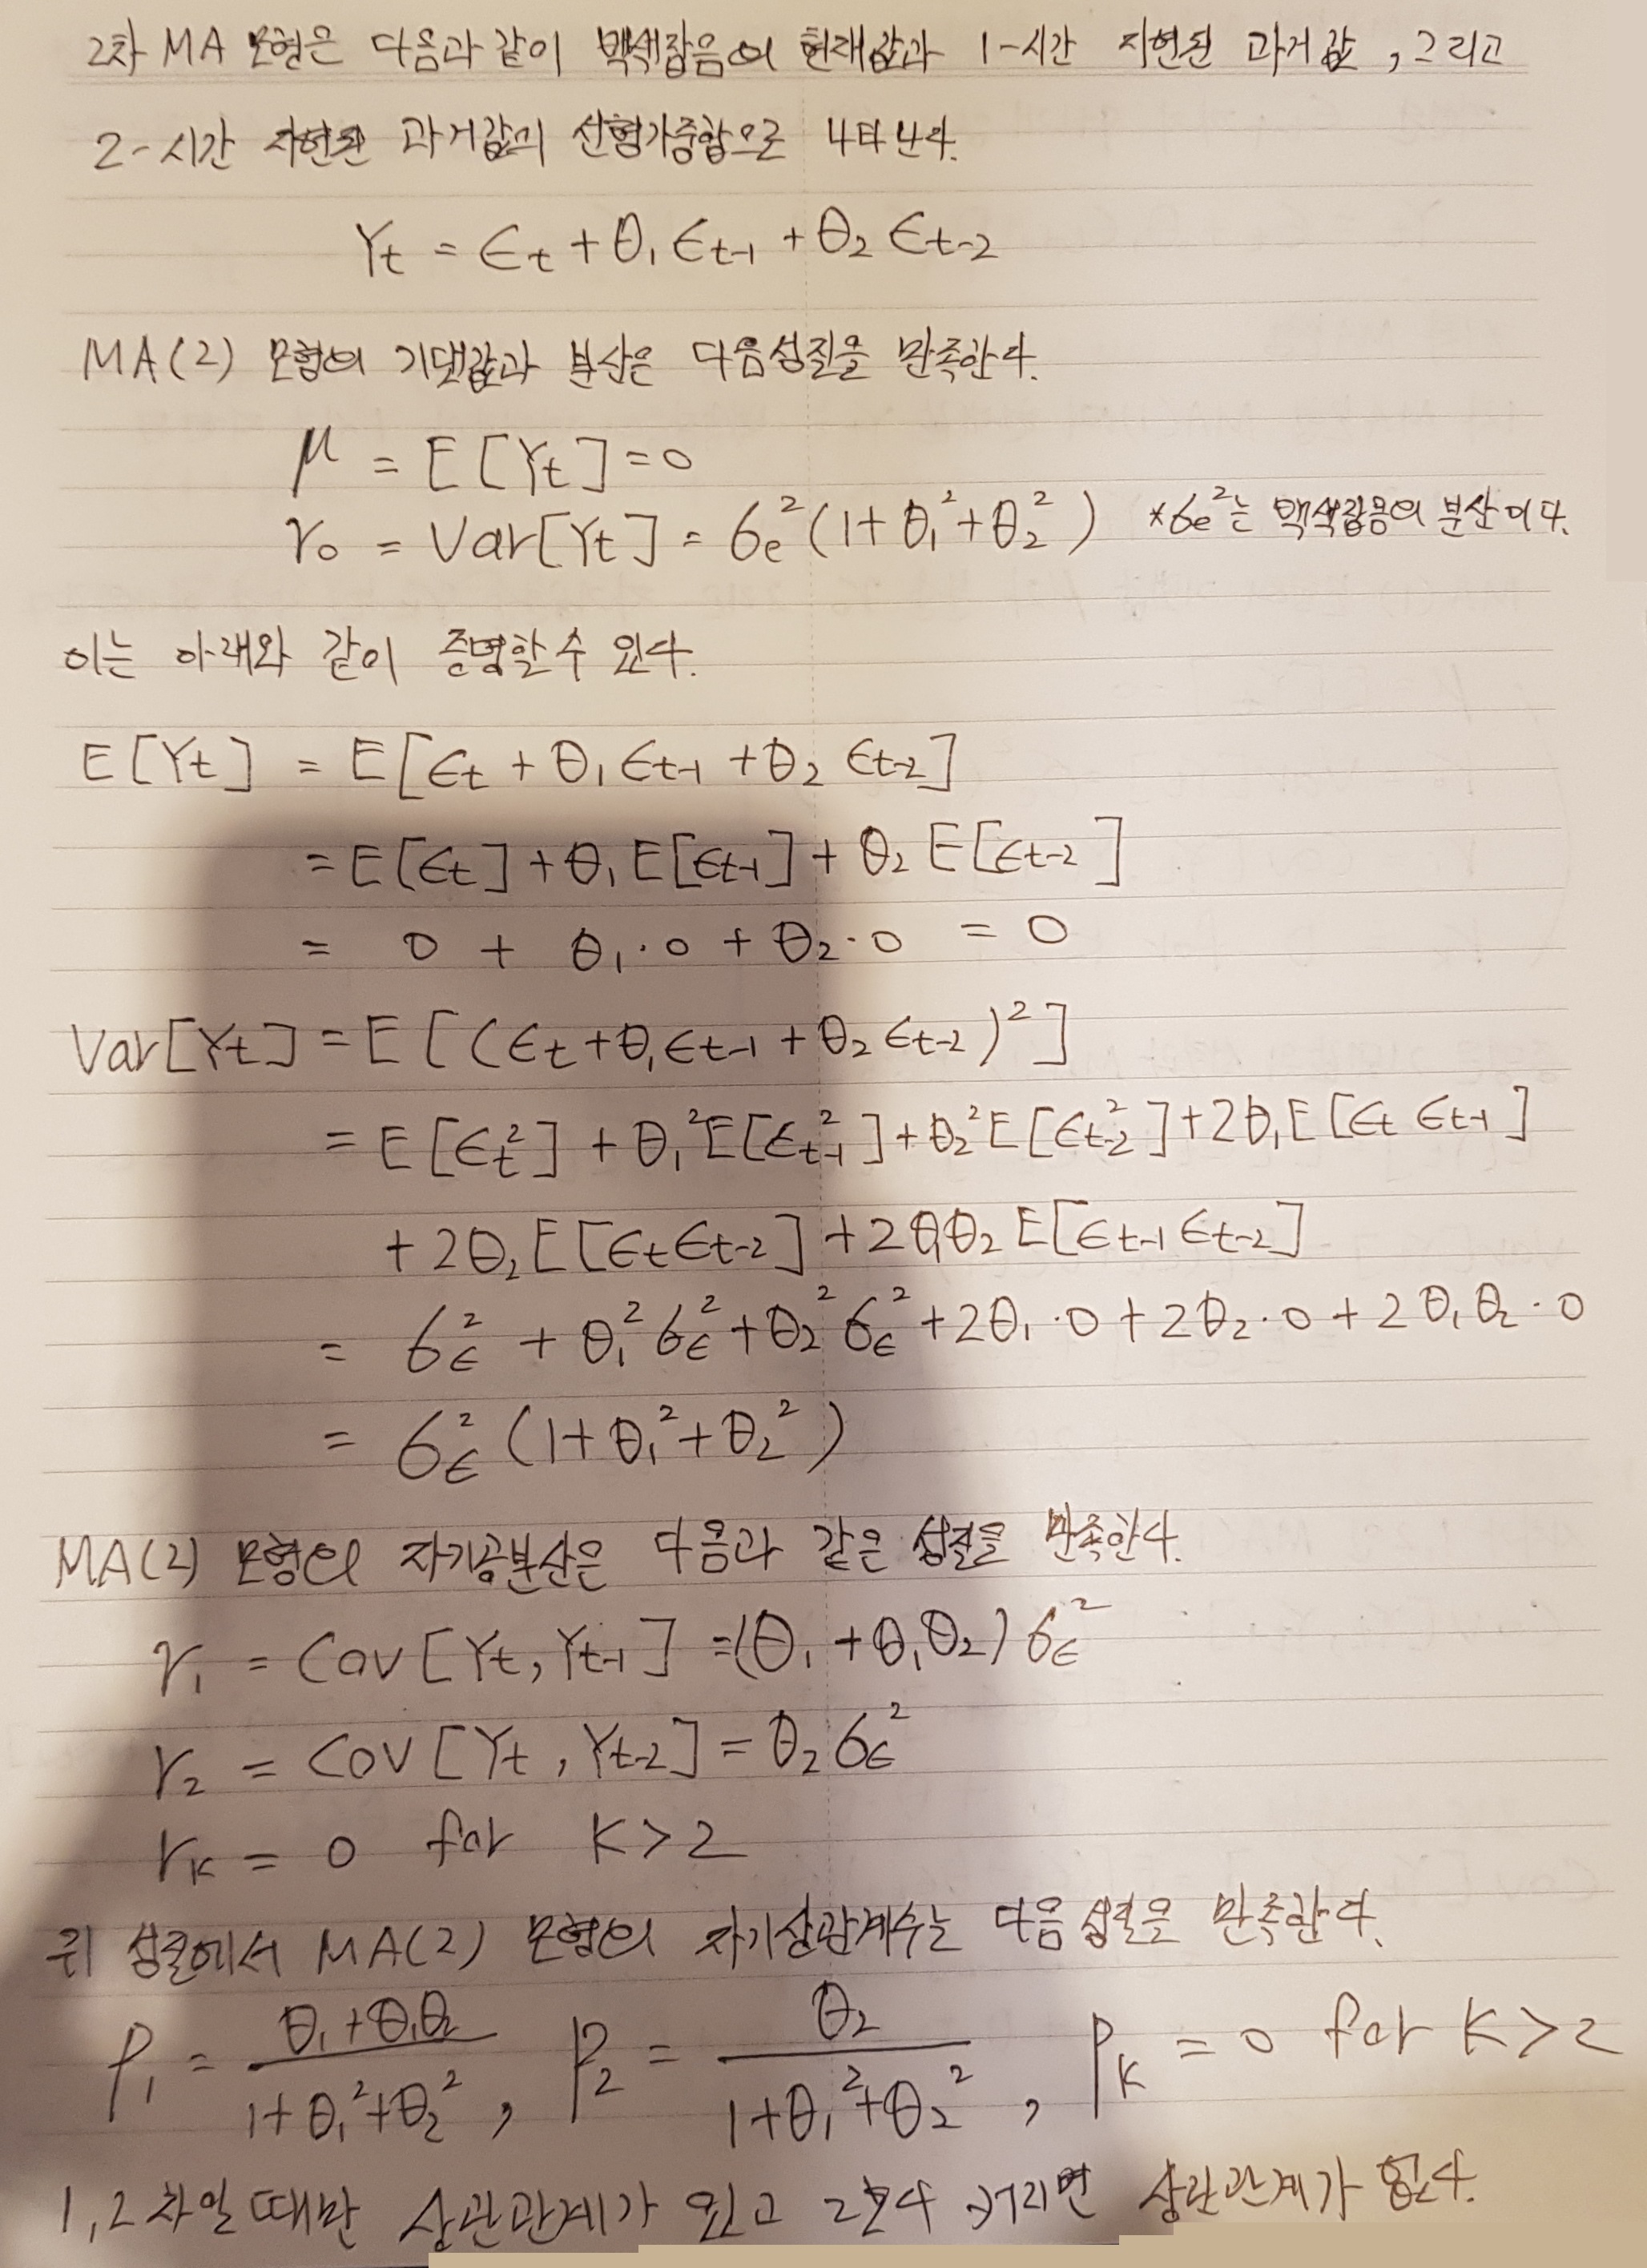 2차 MA 모형은 다음과 같이 백색잡음의 현재값과 1-시간 지연된 과거값, 그리고
2-시간 지연된 과거값의 선형가중합으로 나타난다.
Yt = ϵt + θ₁ϵt-1 + θ₂ϵt-2
MA(2) 모형의 기댓값과 분산은 다음성질을 만족한다.
μ = E[Yt] = 0
r₀ = Var[Yt] = σe²(1+θ₁²+θ₂²) *σe²는 백색잡음의 분산이다.
이는 아래와 같이 증명할 수 있다.
E[Yt] = E[ϵt + θ₁ϵt-1 + θ₂ϵt-2]
= E[ϵt] + θ₁E[ϵt-1] + θ₂E[ϵt-2]
= 0 + θ₁·0 + θ₂·0 = 0
Var[Yt] = E[(ϵt+θ₁ϵt-1+θ₂ϵt-2)²]
= E[ϵt²] + θ₁²E[ϵt-1²] + θ₂²E[ϵt-2²] + 2θ₁E[ϵtϵt-1]
+ 2θ₂E[ϵtϵt-2] + 2θ₁θ₂E[ϵt-1ϵt-2]
= σϵ² + θ₁²σϵ² + θ₂²σϵ² + 2θ₁·0 + 2θ₂·0 + 2θ₁θ₂·0
= σϵ²(1+θ₁²+θ₂²)
MA(2) 모형의 자기공분산은 다음과 같은 성질을 만족한다.
r₁ = Cov[Yt, Yt-1] = (θ₁+θ₁θ₂)σϵ²
r₂ = Cov[Yt, Yt-2] = θ₂σϵ²
rk = 0 for k>2
위 성질에서 MA(2) 모형의 자기상관계수는 다음 성질을 만족한다.
ρ₁ = (θ₁+θ₁θ₂)/(1+θ₁²+θ₂²), ρ₂ = θ₂/(1+θ₁²+θ₂²), ρk = 0 for k>2
1,2차일 때만 상관관계가 있고 2보다 커지면 상관관계가 없다.